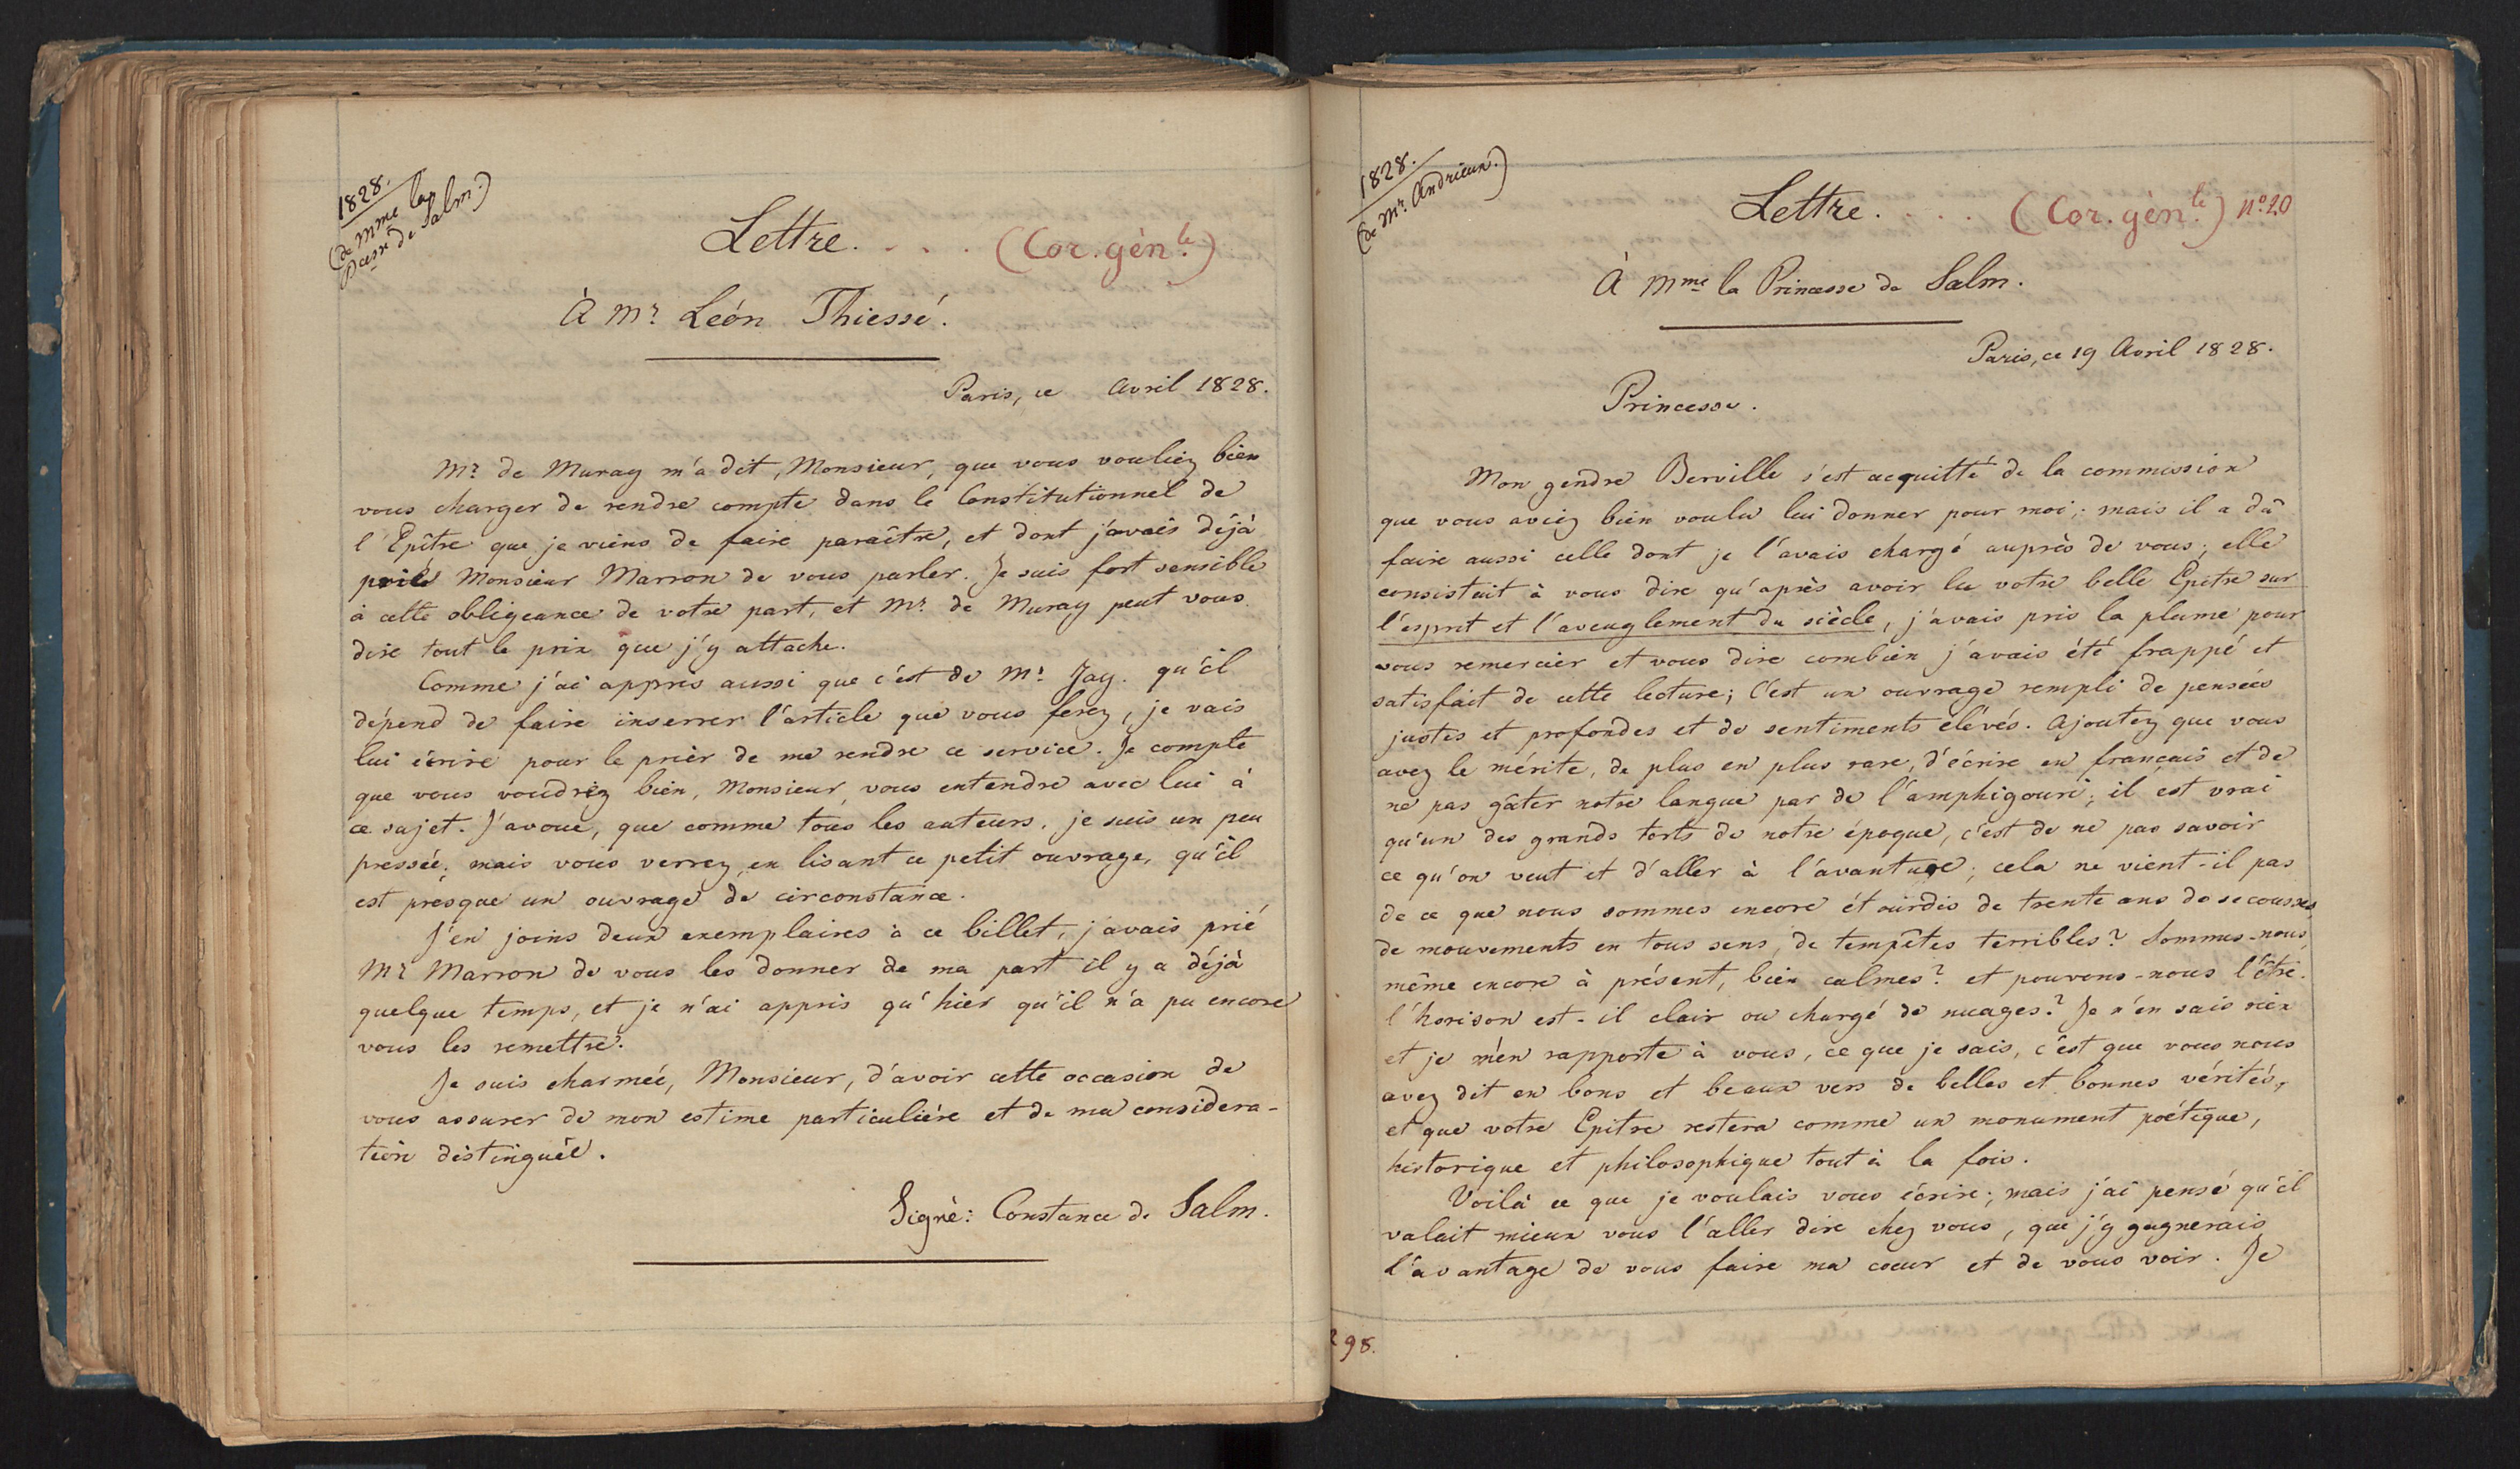 1828.
(de Mme la
Pcesse de Salm.)
Lettre. . . . (Cor. gén.le)
À Mr. Léon Thiessé.
Paris, ce Avril 1828.
Mr. de Muray m'a dit, Monsieur, que vous vouliez bien
vous charger de rendre compte dans le Constitutionnel de
l'Epître que je viens de faire paraître, et dont j'avais déjà
prié Monsieur Marron de vous parler. Je suis fort sensible
à cette obligeance de votre part, et Mr. de Muray peut vous
dire tout le prix que j'y attache.
Comme j'ai appris aussi que c'est de Mr. Jay. qu'il
dépend de faire inserrer l'article que vous ferez, je vais
lui écrire pour le prier de me rendre ce service. Je compte
que vous voudriez bien, Monsieur, vous entendre avec lui à
ce sujet. J'avoue, que comme tous les auteurs, je suis un peu
pressée; mais vous verrez, en lisant ce petit ouvrage, qu'il
est presque un ouvrage de circonstance.
J'en joins deux exemplaires à ce billet, j'avais prié
Mr Marron de vous les donner de ma part il y a déjà
quelque temps, et je n'ai appris qu'hier qu'il n'a pu encore
vous les remettre.
Je suis charmée, Monsieur, d'avoir cette occasion de
vous assurer de mon estime particulière et de ma considera-
tion distinguée.
Signé: Constance de Salm.
1828.
(de Mr. Andrieux.)
Lettre. . . . (Cor. gén.le) N.o 20
À Mme la Princesse de Salm.
Paris, ce 19 Avril 1828.
Princesse.
Mon gendre Berville s'est acquitté de la commission
que vous aviez bien voulu lui donner pour moi; mais il a dû
faire aussi celle dont je l'avais chargé auprès de vous; elle
consistait à vous dire qu'après avoir lu votre belle Epître sur
l'esprit et l'aveuglement du siècle, j'avais pris la plume pour
vous remercier et vous dire combien j'avais été frappé et
satisfait de cette lecture; C'est un ouvrage rempli de pensées
justes et profondes et de sentiments élevés. Ajoutez que vous
avez le mérite, de plus en plus rare, d'écrire en français et de
ne pas gâter notre langue par de l'amphigouri; il est vrai
qu'un des grands torts de notre époque, c'est de ne pas savoir
ce qu'on veut et d'aller à l'avanture; cela ne vient-il pas
de ce que nous sommes encore étourdis de trente ans de secousses,
de mouvements en tous sens, de tempêtes terribles? Sommes-nous,
même encore à présent, bien calmes? et pouvons-nous l'être.
l'horison est-il clair ou chargé de nuages? Je n'en sais rien
et je m'en rapporte à vous, ce que je sais, c'est que vous nous
avez dit en bons et beaux vers de belles et bonnes vérités,
et que votre Epitre restera comme un monument poétique,
historique et philosophique tout à la fois.
Voilà ce que je voulais vous écrire; mais j'ai pensé qu'il
valait mieux vous l'aller dire chez vous, que j'y gagnerais
l'avantage de vous faire ma cour et de vous voir. Je
298.